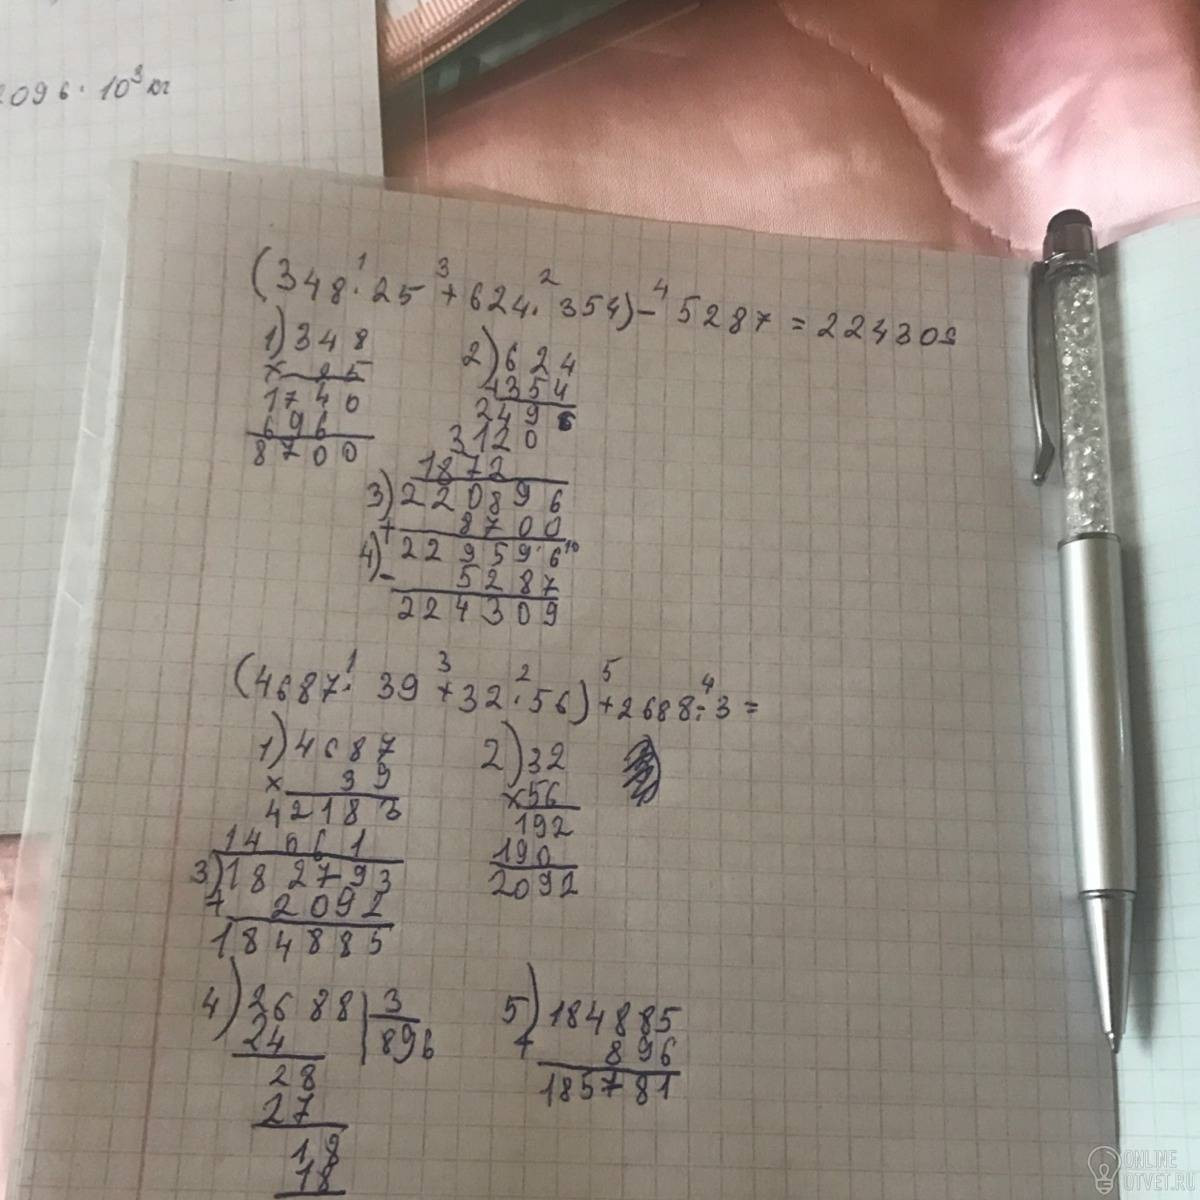 2096 · 10³ кг
(348 · 25 + 624 · 354) − 5287 = 224309
1 3 2 4
1) 348
× 25
1740
696
8700
2) 624
354
2496
3120
1872
3) 220896
+ 8700
4) 229596
10
− 5287
224309
(4687 · 39 + 32 · 56) + 2688 : 3 =
1 3 2 5 4
1) 4687
× 39
42183
14061
3) 182793
+ 2092
184885
2) 32
× 56
192
190
2092
4) 2688 | 3
24 896
28
27
18
18
5) 184885
+ 896
185781
ONLINE
OTVET.RU